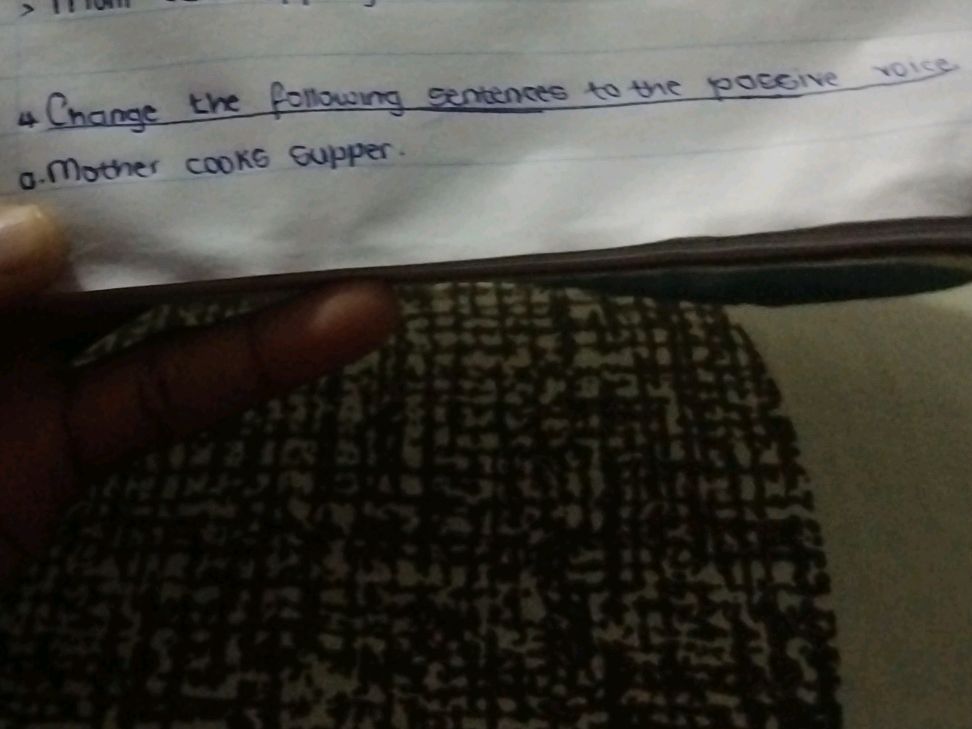 4 Change the following sentences to the passive voice
a. Mother cooks supper.